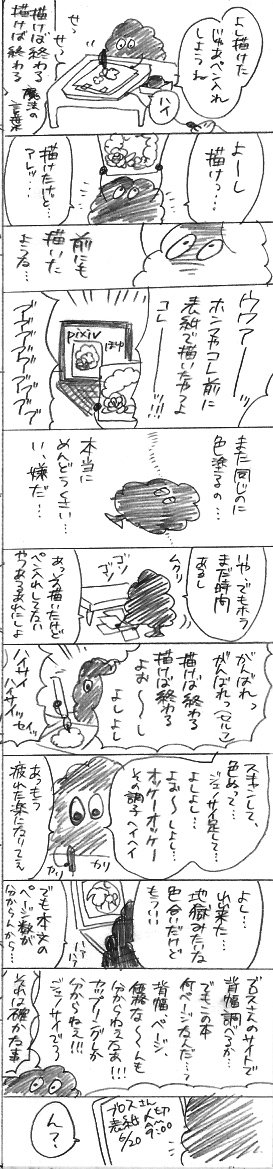 よし描けた
じゃあペン入れ
しようね
ハイ
せっ
せっ
描けば終わる
描けば終わる
魔法の
言葉
よーし
描けっ…
描けたけど…
アレッ…
前にも
描いた
ような…
ウウアーーッ
ホンマやコレ前に
表紙で描いたやつよ
コレーー!!!
pixiv
また同じのに
色塗るの…
本当に
めんどうくさい…
い、嫌だ…
いや、でもホラ
まだ時間
あるし
ムクリ
ゴソ
ゴソ
あっ、この描いたけど
ペン入れしてない
やつあるあれにしよ
がんばれっ
がんばれっ(セルフ)
描けば終わる
描けば終わる
よぉーーし
よしよし
ハイサイ
ハイサイッセイッ
スキャンして、
色ぬって…
ジェノサイ足して…
よしよし…
よぉーしよし…
オッケーオッケー
その調子ヘイヘイ
カリ
カリ
あっもう
疲れた楽になりてぇ
よし…
出来た…
地獄みたいな
色合いだけど
もうい…
ハァ
ハァ
でも本文の
ページ数が
分からんから…
プロスさんのサイトで
背幅調べるか…
でもこの本
何ページなんだ…?
背幅、ページ、
価格なーんも
分からねぇなあ!!!
カップリングしか
分からねぇ!!!
ジェノサイでう
それは確かな事
プロスさん
表紙〆切
6/20 9:00
ん?